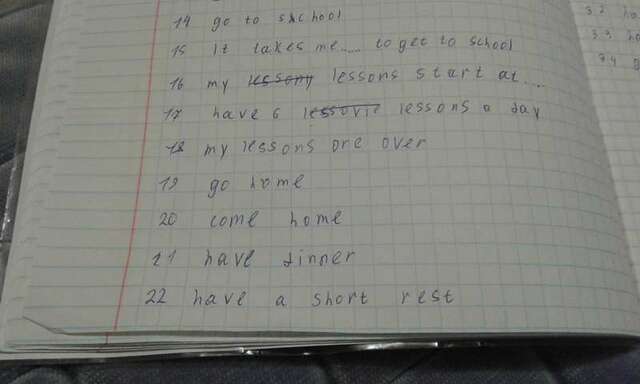 14 go to shchool
15 It takes me..... to get to school
16 my lessony lessons start at....
17 have 6 lessons a day
18 my lessons are over
19 go home
20 come home
21 have dinner
22 have a short rest
32
33
34